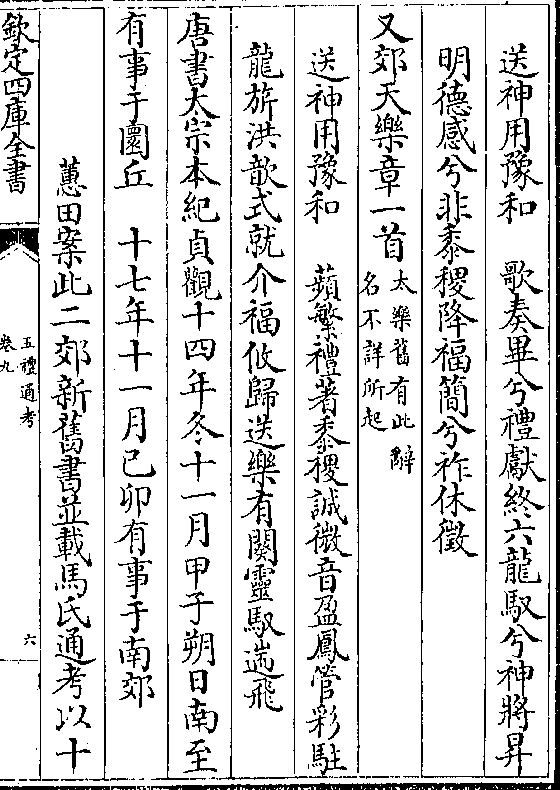 送神用豫和　歌奏畢兮禮獻終六龍馭兮神將昇
明德感兮非黍稷降福簡兮祚休徵
又郊天樂章一首太樂舊有此辭
名不詳所起
送神用豫和　蘋蘩禮著黍稷誠微音盈鳳管彩駐
龍旂洪歆式就介福攸歸送樂有闋靈馭遄飛
唐書太宗本紀貞觀十四年冬十一月甲子朔日南至
有事于圜丘　十七年十一月己卯有事于南郊
蕙田案此二郊新舊書並載馬氏通考以十
欽定四庫全書
五禮通考
卷九
六